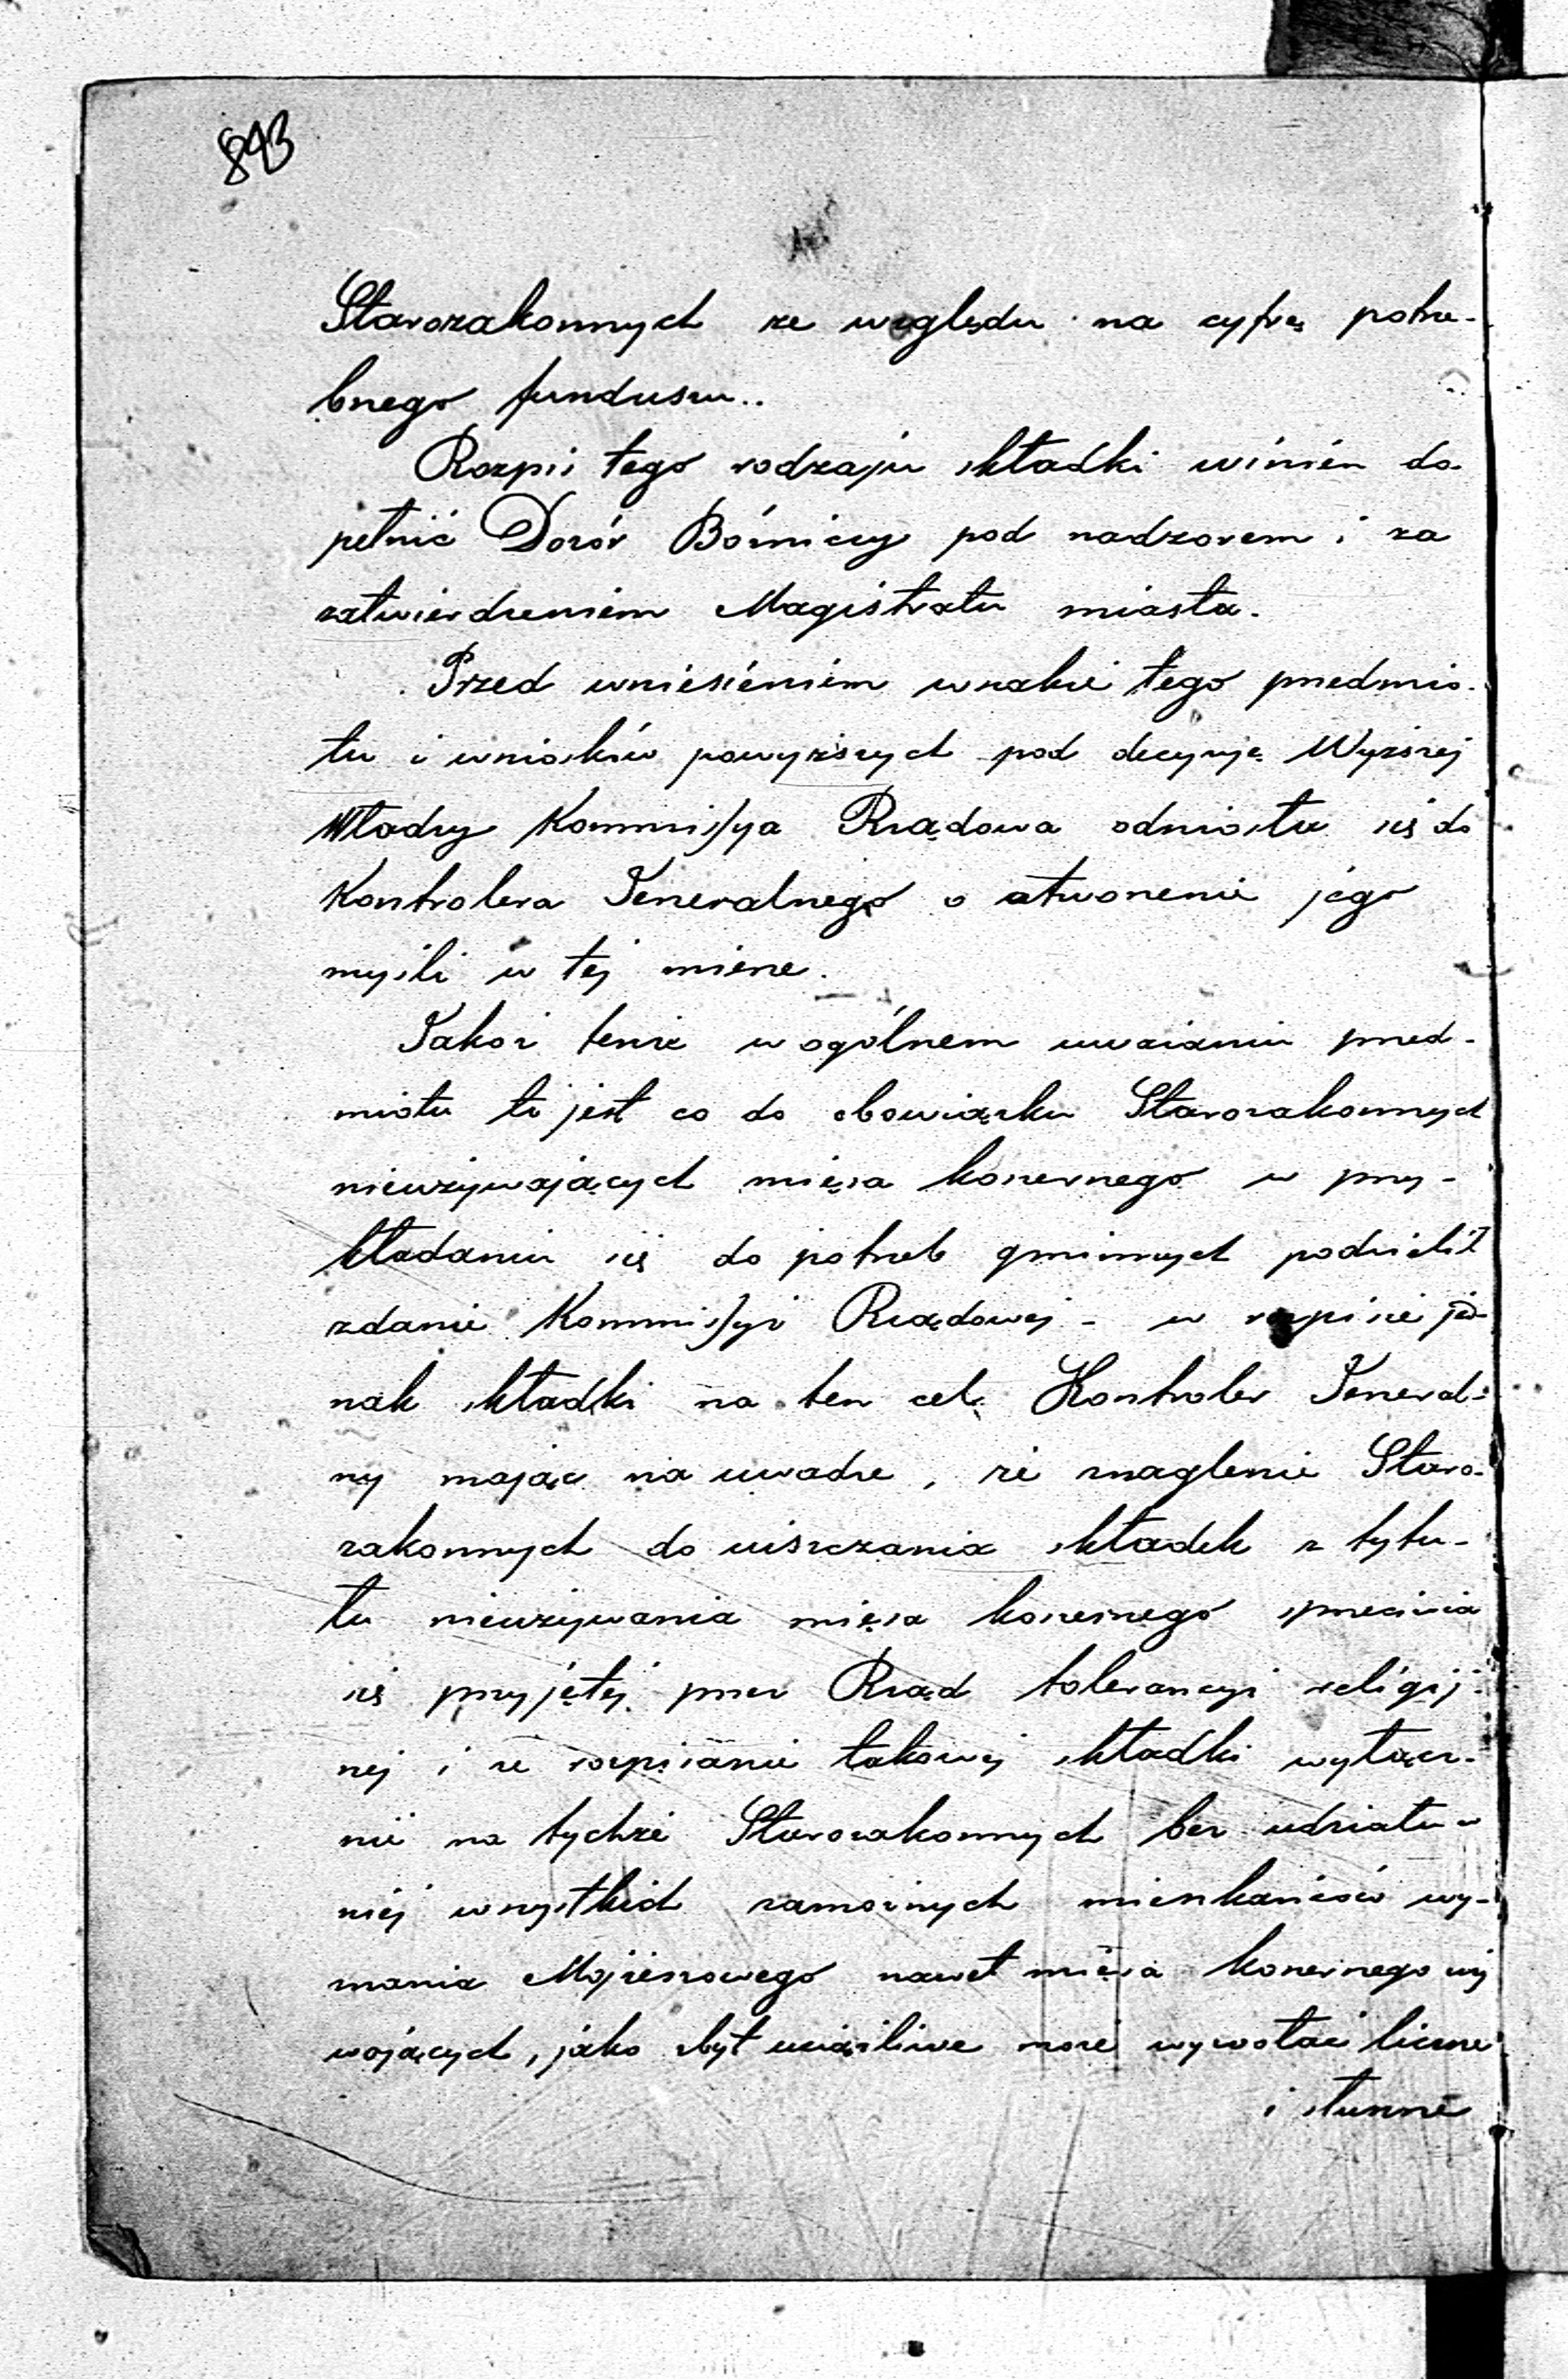 843
Starozakonnych ze względu na cyfrę potrze-
bnego funduszu..
Rozpis tego rodzaju składki winien do-
pełnić Dozór Bóżniczy pod nadzorem i za
zatwierdzeniem Magistratu miasta.
Przed wniesieniem wszakże tego przedmio-
tu i wniosków powyższych pod decyzyę Wyższej
Władzy Kommissya Rządowa odniosła się do
Kontrolera Jeneralnego o otworzenie jego
myśli w tej mierze.
Jakoż tenże w ogólnem uważaniu przed-
miotu to jest co do obowiązku Starozakonnych
nieużywających mięsa koszernego w przy-
kładaniu się do potrzeb gminnych podzielił
zdanie Kommissyi Rządowej - w rozpisie jed-
nak składki na ten cel Kontroler Jeneral-
ny mając na uwadze, że znaglenie Staro-
zakonnych do uiszczania składek z tytu-
łu nieużywania mięsa koszernego sprzeciwia
się przyjętej przez Rząd tolerancyi religij-
nej i że rozpisanie takowej składki wyłącz-
nie na tychże Starozakonnych bez udziału w
niej wszystkich zamożnych mieszkańców wy-
znania Mojżeszowego nawet mięsa koszernego uży
wających, jako zbyt uciążliwe może wywołać liczne
i słuszne